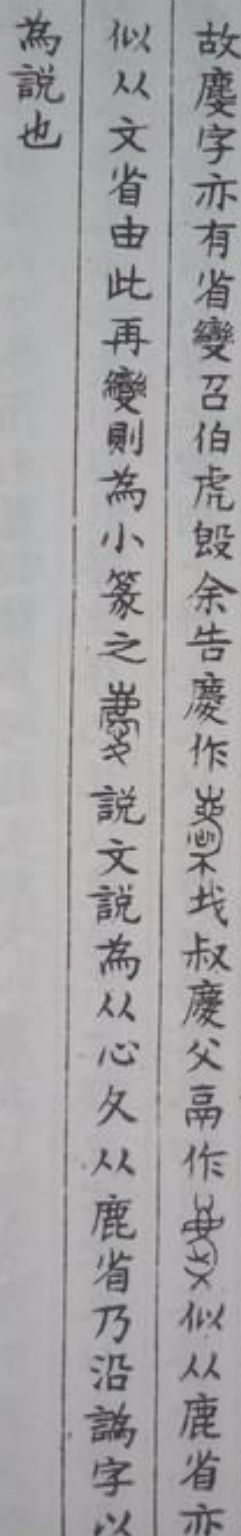 故慶字亦有省變召伯虎毁余告慶作不𡉚叔慶父鬲作似从鹿省亦
似从文省由此再變則為小篆之說文說為从心夊从鹿省乃沿譌字以
為說也